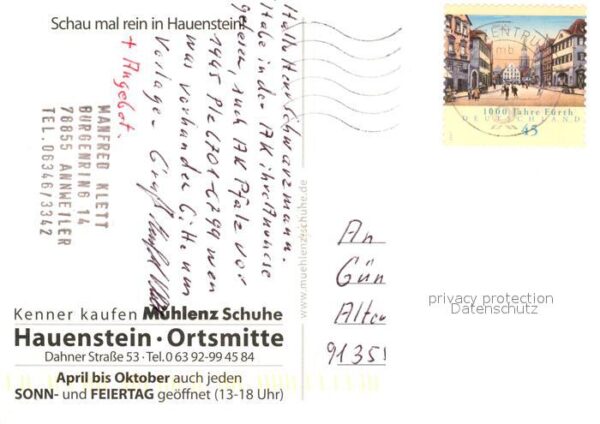 Schau mal rein in Hauenstein!
Hallo Herr Schwarzmann.
Habe in der AK ihre Annonce
gelesen, such AK Pfalz vor
1945 PLZ 6701-6799 wen
was vorhanden bitte um
Vorlage. Gruß
+ Angebot.
MANFRED KLETT
BURGENRING 14
76855 ANNWEILER
TEL. 06346/3342
www.muehlenz-schuhe.de
Kenner kaufen Mühlenz Schuhe
Hauenstein · Ortsmitte
Dahner Straße 53 · Tel. 0 63 92-99 45 84
April bis Oktober auch jeden
SONN- und FEIERTAG geöffnet (13-18 Uhr)
ZENTRUM
1000 Jahre Fürth
DEUTSCHLAND
45
An
Gün
Alten
91351
privacy protection
Datenschutz